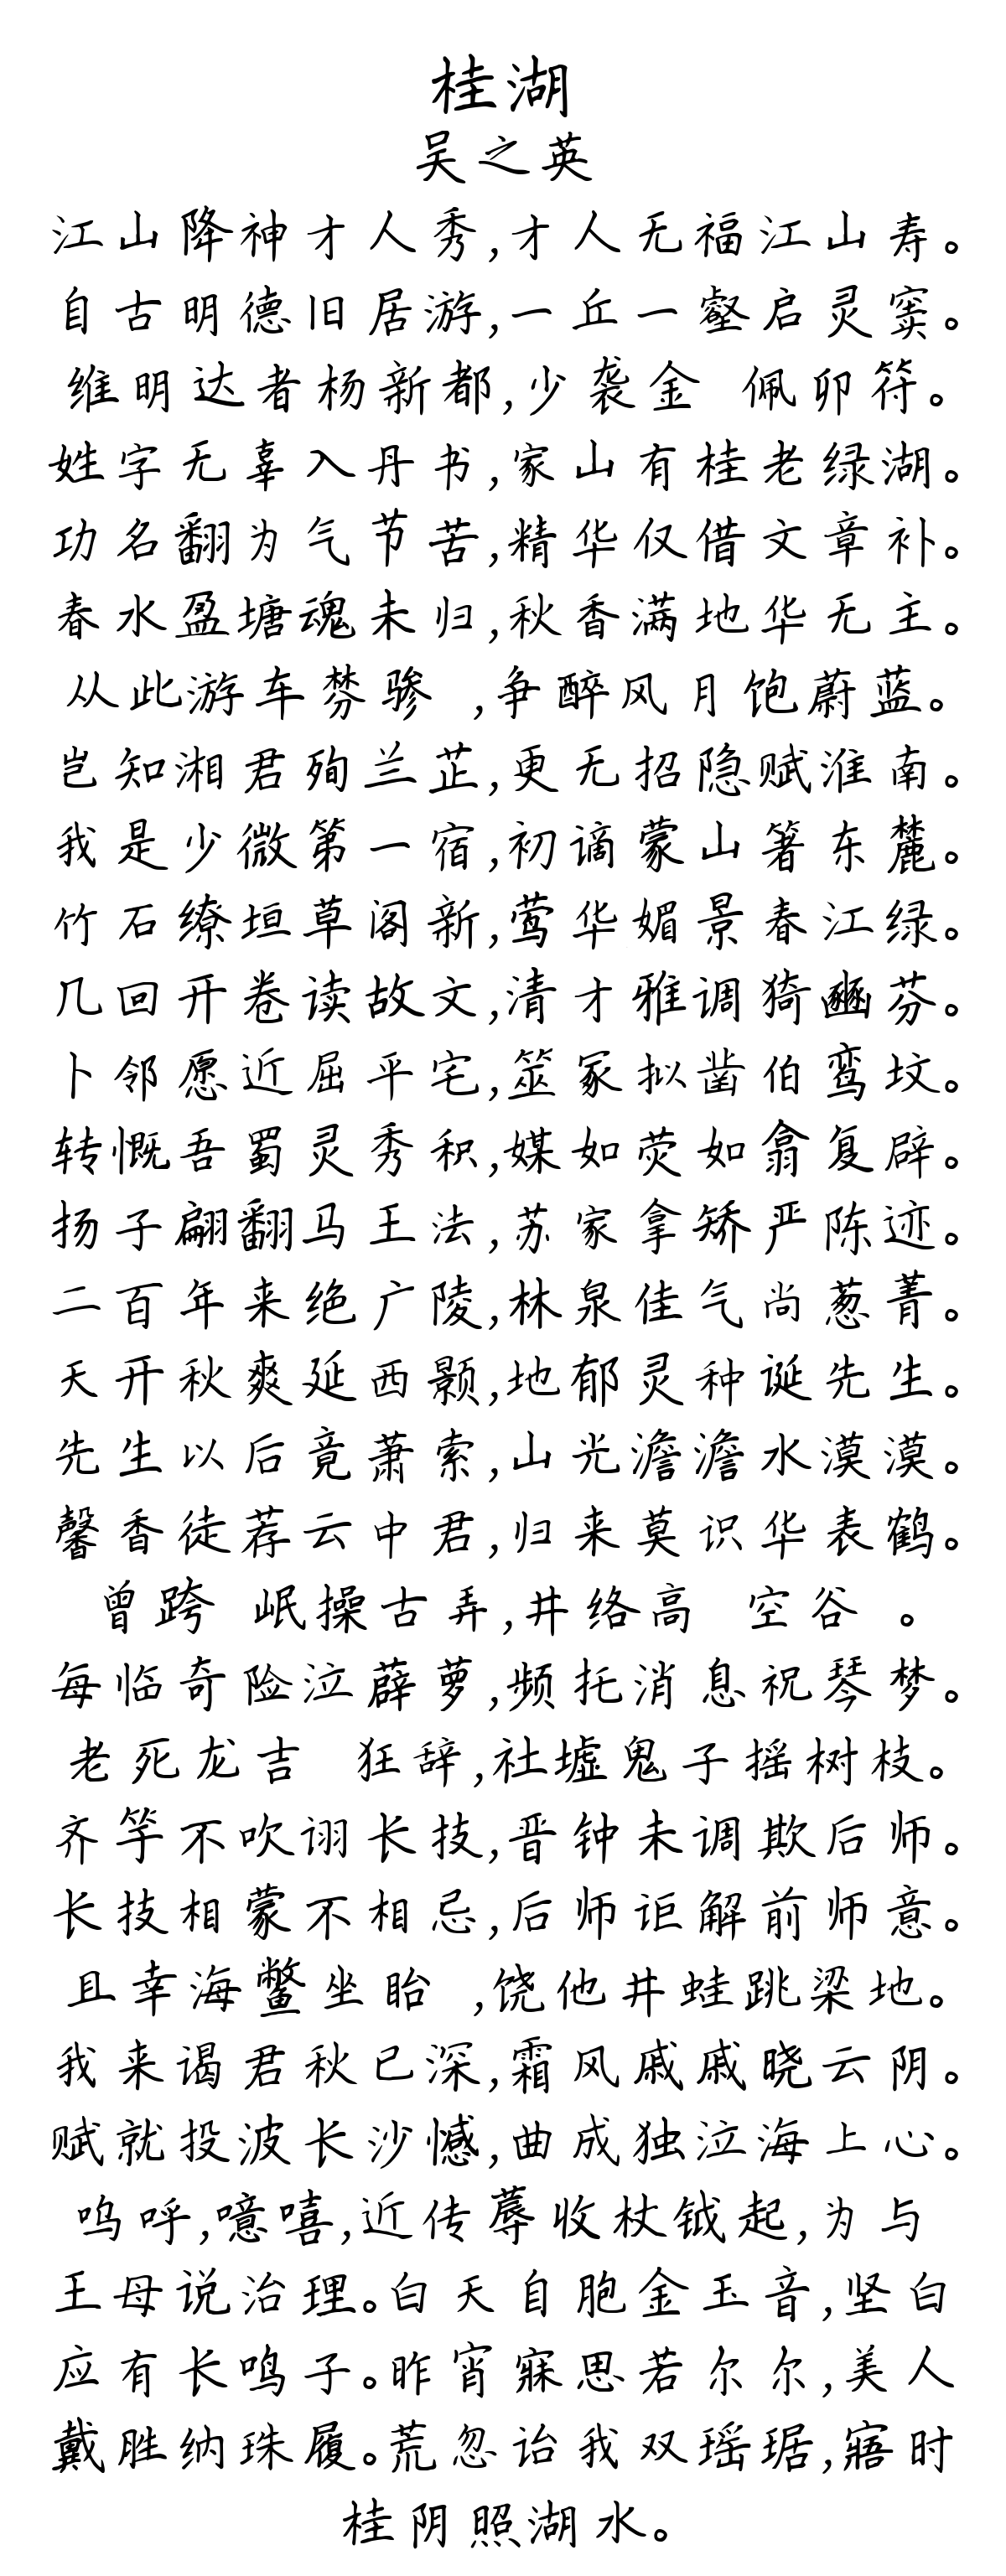 桂湖
吴之英
江山降神才人秀,才人无福江山寿。
自古明德旧居游,一丘一壑启灵窦。
维明达者杨新都,少袭金 佩卯符。
姓字无辜入丹书,家山有桂老绿湖。
功名翻为气节苦,精华仅借文章补。
春水盈塘魂未归,秋香满地华无主。
从此游车棼骖 ,争醉风月饱蔚蓝。
岂知湘君殉兰芷,更无招隐赋淮南。
我是少微第一宿,初谪蒙山箸东麓。
竹石缭垣草阁新,莺华媚景春江绿。
几回开卷读故文,清才雅调猗豳芬。
卜邻愿近屈平宅,筮冢拟凿伯鸾坟。
转慨吾蜀灵秀积,媒如荧如翕复辟。
扬子翩翻马王法,苏家拿矫严陈迹。
二百年来绝广陵,林泉佳气尚葱菁。
天开秋爽延西颢,地郁灵种诞先生。
先生以后竟萧索,山光澹澹水漠漠。
馨香徒荐云中君,归来莫识华表鹤。
曾跨 岷操古弄,井络高 空谷 。
每临奇险泣薜萝,频托消息祝琴梦。
老死龙吉 狂辞,社墟鬼子摇树枝。
齐竽不吹诩长技,晋钟未调欺后师。
长技相蒙不相忌,后师讵解前师意。
且幸海鳖坐眙 ,饶他井蛙跳梁地。
我来谒君秋已深,霜风戚戚晓云阴。
赋就投波长沙憾,曲成独泣海上心。
呜呼,噫嘻,近传蓐收杖钺起,为与
王母说治理。白天自胞金玉音,坚白
应有长鸣子。昨宵寐思若尔尔,美人
戴胜纳珠履。荒忽诒我双瑶琚,寤时
桂阴照湖水。